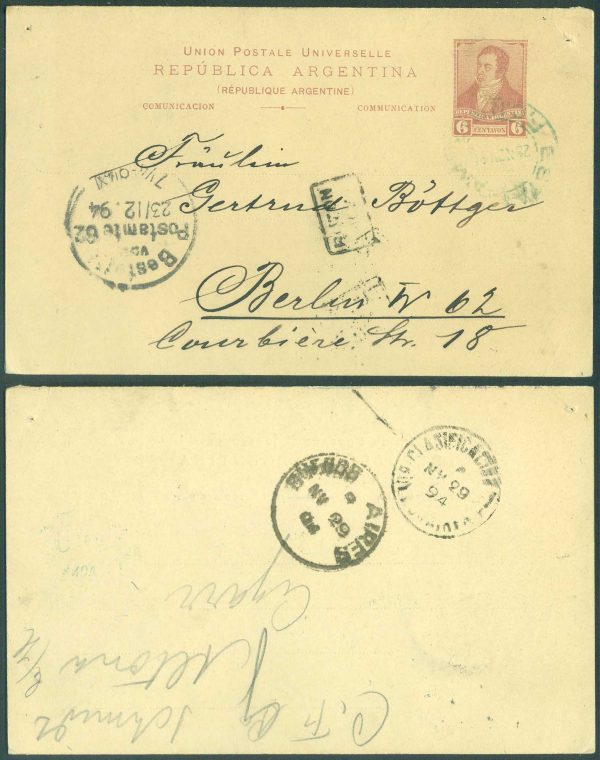 UNION POSTALE UNIVERSELLE
REPÚBLICA ARGENTINA
(RÉPUBLIQUE ARGENTINE)
COMUNICACION COMMUNICATION
REPUBLICA ARGENTINA
6 CENTAVOS 6
Fräulein
Gertrud Böttger
Berlin W 62
Courbière Str. 18
Bestellt
vom
Postamte 62
23/12.94
BUENOS AIRES
NV 29
94
CLASIFICACION
NV 29
94
C. F.
Schmidt
Altona
Cigarr